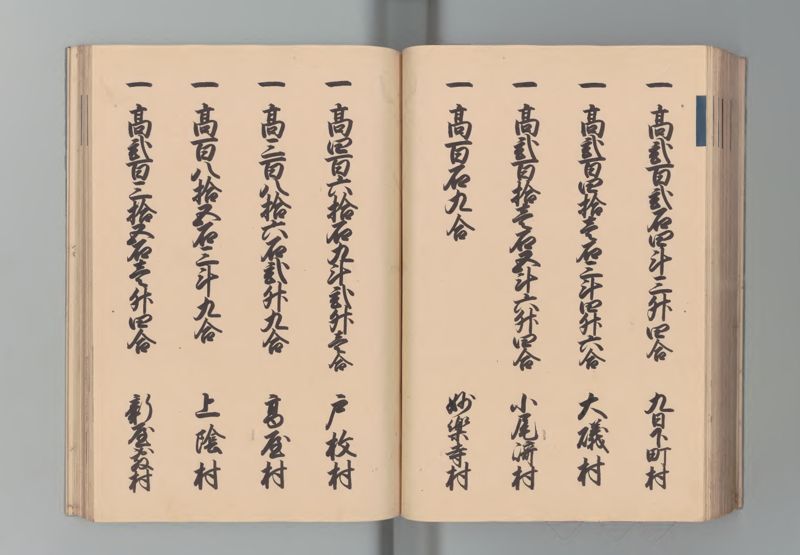 一 高弐百弐石四斗三升四合 九日下町村
一 高弐百四拾壱石三斗四升六合 大磯村
一 高弐百拾壱石五斗六升四合 小尾崎村
一 高百石九合 妙楽寺村
一 高四百六拾石九斗弐升壱合 戸牧村
一 高三百八拾六石弐升九合 高屋村
一 高百八拾五石三斗九合 上陰村
一 高弐百三拾五石壱升四合 新屋敷村